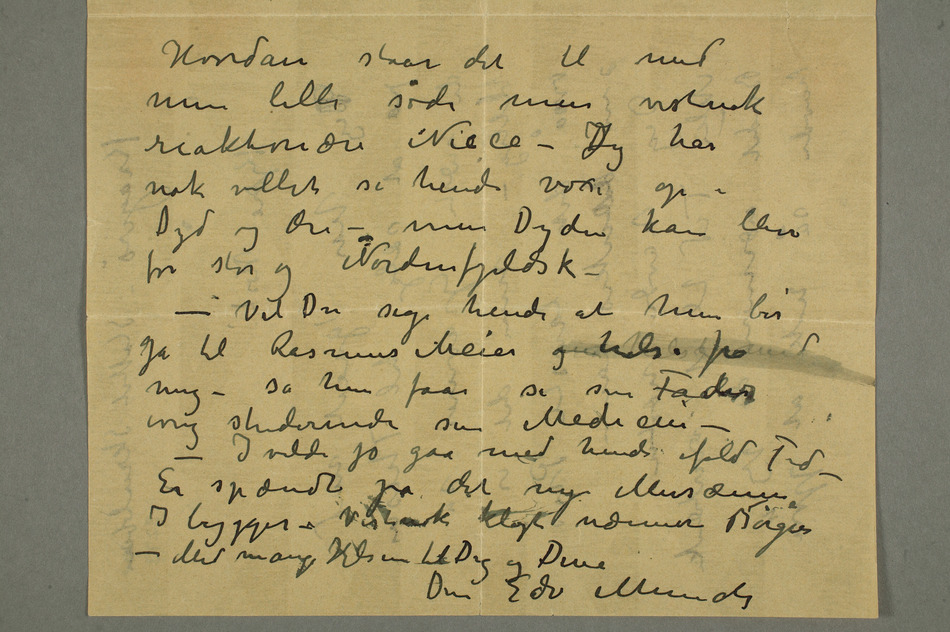 Hvordan staar det til med
min lille söde men vistnok
reaktionære Niece – Jeg har
nok villet se hende voxe op i
Dyd og Ære – men Dyden kan blive
for stor og Nordenfjeldsk –
– Vil Du sige hende at hun bör
gå til Rasmus Meier og hilse fra
mig – så hun faar se sin Fader
ivrig studerende sin Medicin –
– I vilde jo gaa med hende ifald Tid –
Er spændt på det nye Musæum
I bygger – Vistnok klogt nærmere Börgen
– Med mange Hilsen til Dig og Dine
Din Edv Munch